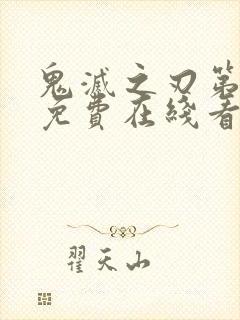 鬼滅之刃第
免費在綫看
翟天山